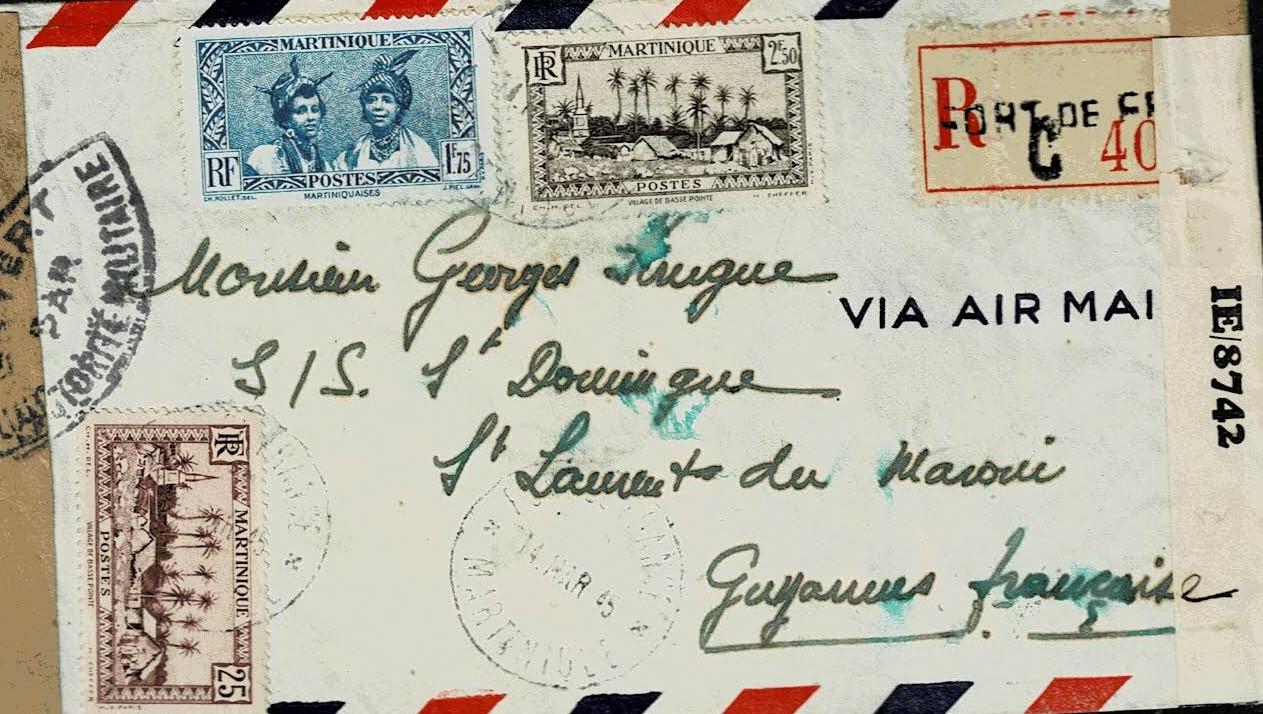 MARTINIQUE
RF
1F.75
POSTES
CH. ROLLET. DEL.
MARTINIQUAISES
RF
MARTINIQUE
2F.50
POSTES
VILLAGE DE BASSE POINTE
H. CHEFFER
R
FORT DE FR
C
40
OUVERT
PAR
L'AUTORITÉ MILITAIRE
Monsieur Georges
VIA AIR MAI
IE/8742
S/S. St Domingue
St Laurent du Maroni
Guyannes française
RF
MARTINIQUE
25
POSTES
VILLAGE DE BASSE POINTE
H. CHEFFER
14 MAR 45
* MARTINIQUE *